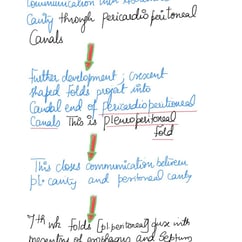 Communication with
Cavity through pericardio peritoneal
Canals
Further development ; crescent
shaped folds projat into
Caudal end of pericardioperitoneal
Canals This is pleuroperitoneal
fold
This closes communication between
pl. cavity and peritoneal cavity
7th wk folds [pl. peritoneal] fuse with
mesentery of esophagus and Septum